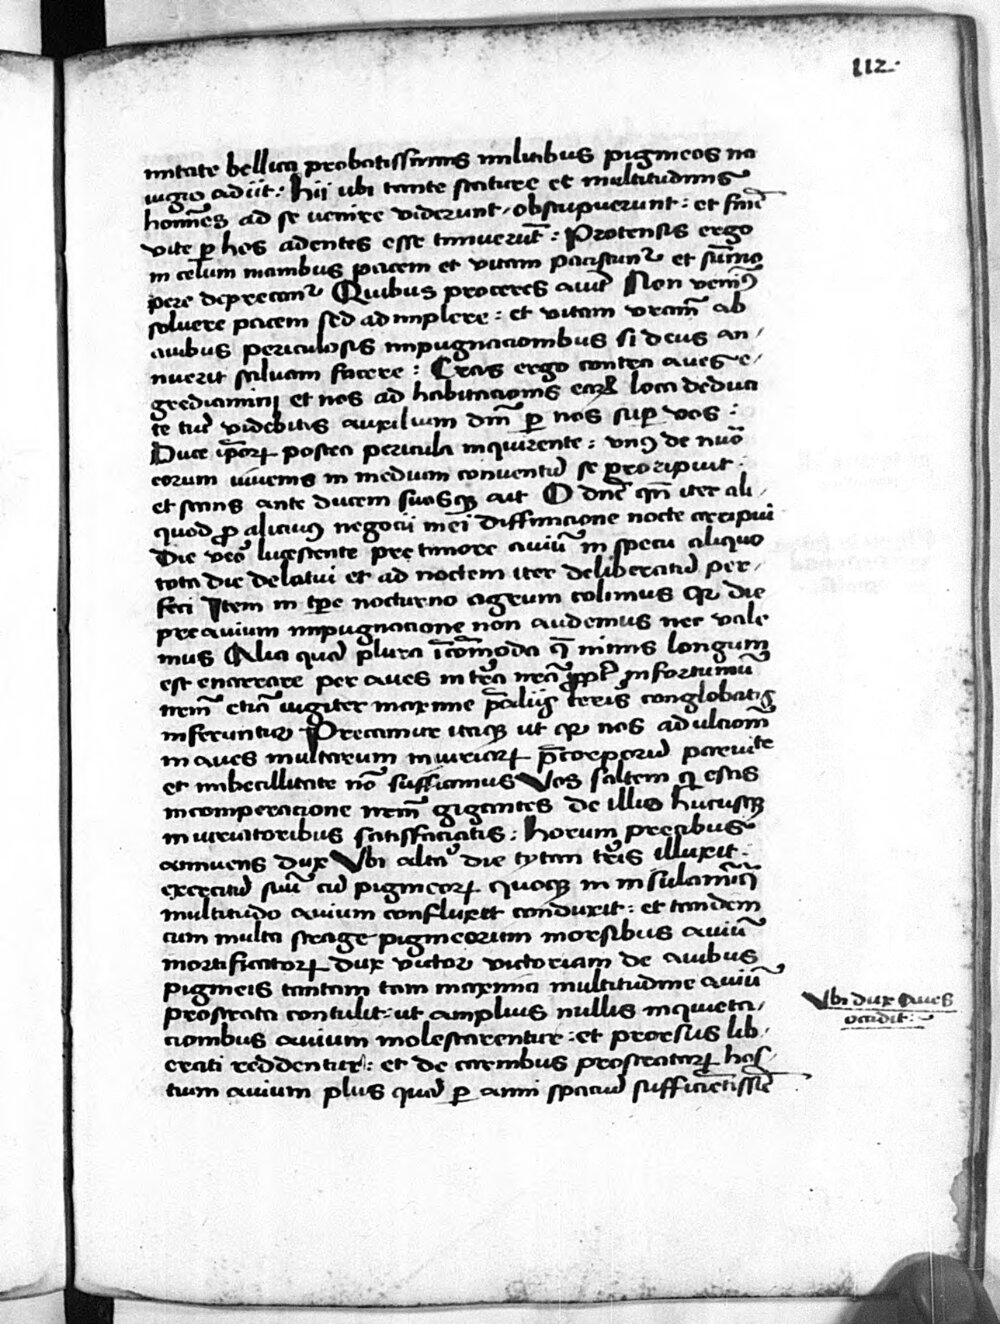 112.
mitate bellica probatissimis militibus pigmeos na
uigio adiit : Hij ubi tante stature et multitudinis
hoīes ad se venire viderunt / obstupuerunt : et finē
vite p hos adentes esse timuerūt : Protensis ergo
in celum manibus pacem et vitam paciscunt̄ et sūmo
pere deprecant̄ Quibus proceres aiūt Non venimꝰ
soluere pacem sed adimplere : et vitam vr̄am ab
auibus periculosis impugnacionibus si deus an /
nuerit saluam facere : Cras ergo contra aues e /
grediamini et nos ad habitacionis eaꝝ loca deduci
te tūc videbitis auxilium dn̄i p nos sup vos :
Duce ip̄oꝝ postea pericula inquirente : vnꝰ de nūo
eorum iuuenis in medium conuentū se proripuit :
et stans ante ducem suosqꝫ ait O dn̄e qn̄ iter ali /
quod ꝓ alicuiꝰ negocii mei diffinicione nocte arripui
Die vero lucescente pre timore auiū in specu aliquo
tota die delatui et ad noctem iter deliberatū per /
feci Item in tp̄e nocturno agrum colimus qꝛ die
pre auium impugnacione non audemus nec vale
mus Alia quā plura īcōmoda q̄ nimis longum
est enarrare per aues in tr̄a nr̄a ꝓpt̄ infortuniū
nr̄m eciā iugiter maxime p̄aliis ceteris conglobatis
inferuntur Precamur itaqꝫ ut qꝛ nos ad ulcionē
in aues multarum iniuriaꝝ p̄ corporū paruitate
et imbecillitate nō sufficimus Vos saltem qi estis
in comperacione nr̄m gigantes de illis hucusqꝫ
iniuriatoribus satisfaciatis : Horum precibus
annuens dux Vbi alta die tytan terris illuxit :
exercitū suū cū pigmeoꝝ quoqꝫ in insulam qꝰ
multitudo auium confluxit conduxit : et tandem
cum multa strage pigmeorum morsibus auiū
mortificatoꝝ dux victor victoriam de auibus
pigmeis tantam tam maxima multitudine auiū
prostrata contulit : ut amplius nullis inquieta /
cionibus auium molestarentur : et prorsus lib /
erati redderentur : et de carnibus prostrataꝝ hos /
tium auium plus quā p anni spaciū sufficientissīe
Vbi dux Aues
occidit : ~